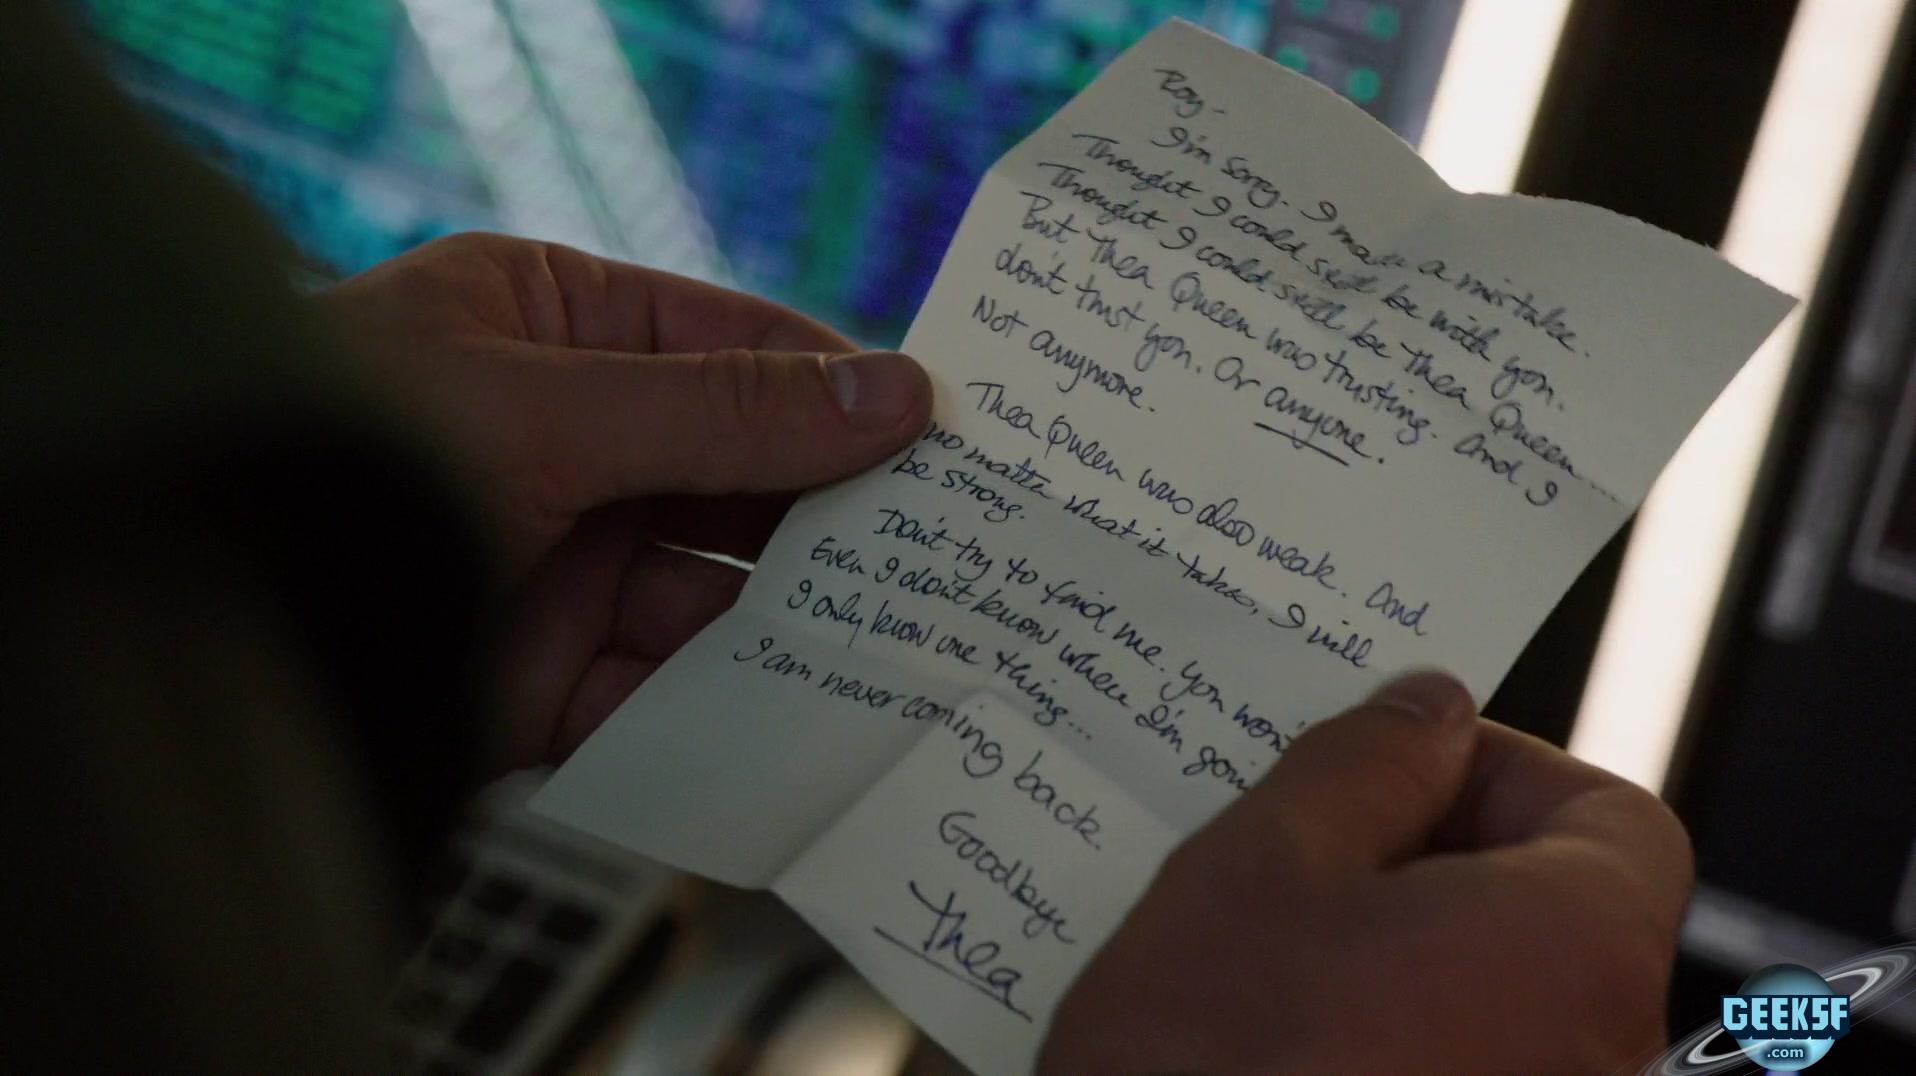 Roy-
I'm sorry. I made a mistake.
Thought I could still be with you.
Thought I could still be Thea Queen...
But Thea Queen was trusting. And I
don't trust you. Or anyone.
Not anymore.
Thea Queen was also weak. And
no matter what it takes, I will
be strong.
Don't try to find me. You won't
Even I don't know where I'm goin
I only know one thing...
I am never coming back.
Goodbye
Thea
GEEKSF
.com